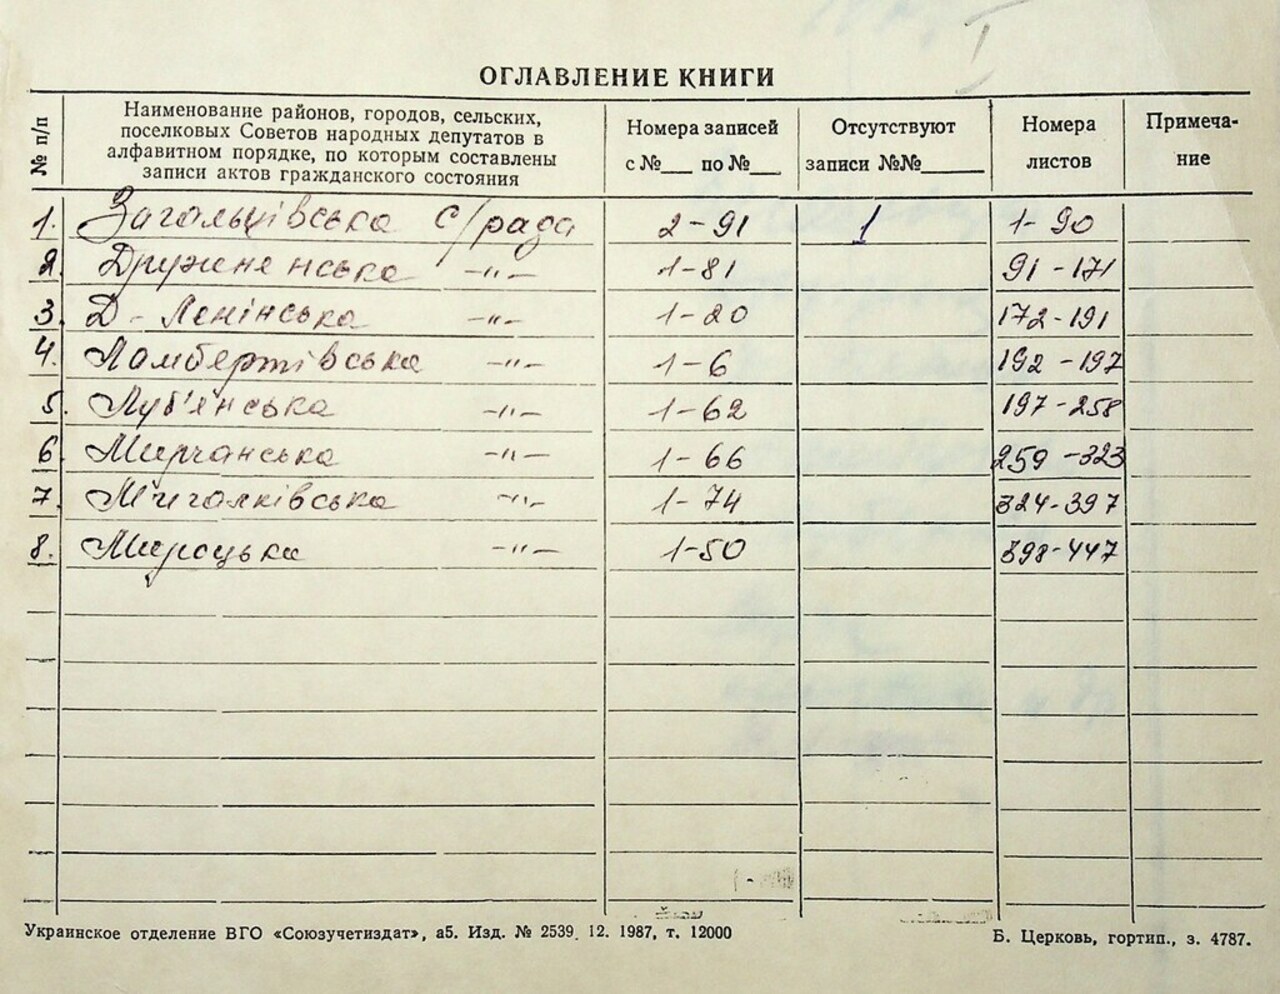 I
ОГЛАВЛЕНИЕ КНИГИ
№ п/п
Наименование районов, городов, сельских,
поселковых Советов народных депутатов в
алфавитном порядке, по которым составлены
записи актов гражданского состояния
Номера записей
с №___ по №___
Отсутствуют
записи №№______
Номера
листов
Примеча-
ние
1. Загальцівська с/рада 2-91 1 1-90
2. Дружнянська -"- 1-81 91-171
3. Д-Ленінська -"- 1-20 172-191
4. Ламбертівська -"- 1-6 192-197
5. Луб'янська -"- 1-62 197-258
6 Мирчанська -"- 1-66 259-323
7. Мигалківська -"- 1-74 324-397
8. Мироцька -"- 1-50 398-447
Украинское отделение ВГО «Союзучетиздат», а5. Изд. № 2539. 12. 1987, т. 12000
Б. Церковь, гортип., з. 4787.